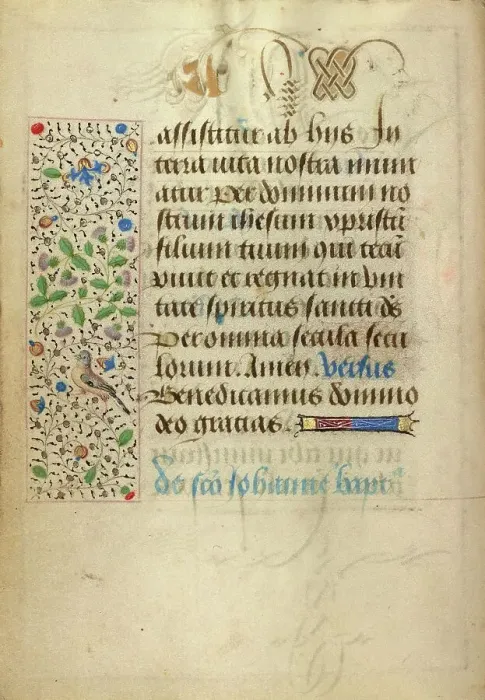 assistitur ab hys In
terra uita nostra muni
atur Per dominum no
strum ihesum xpristū
filium tuum qui tecū
viuit et regnat in vni
tate spiritus sancti ds̄
Per omnia secula secu
lorum. Amen. versus
Benedicamus domino
deo gracias.
de sc̄o Iohanne bapt